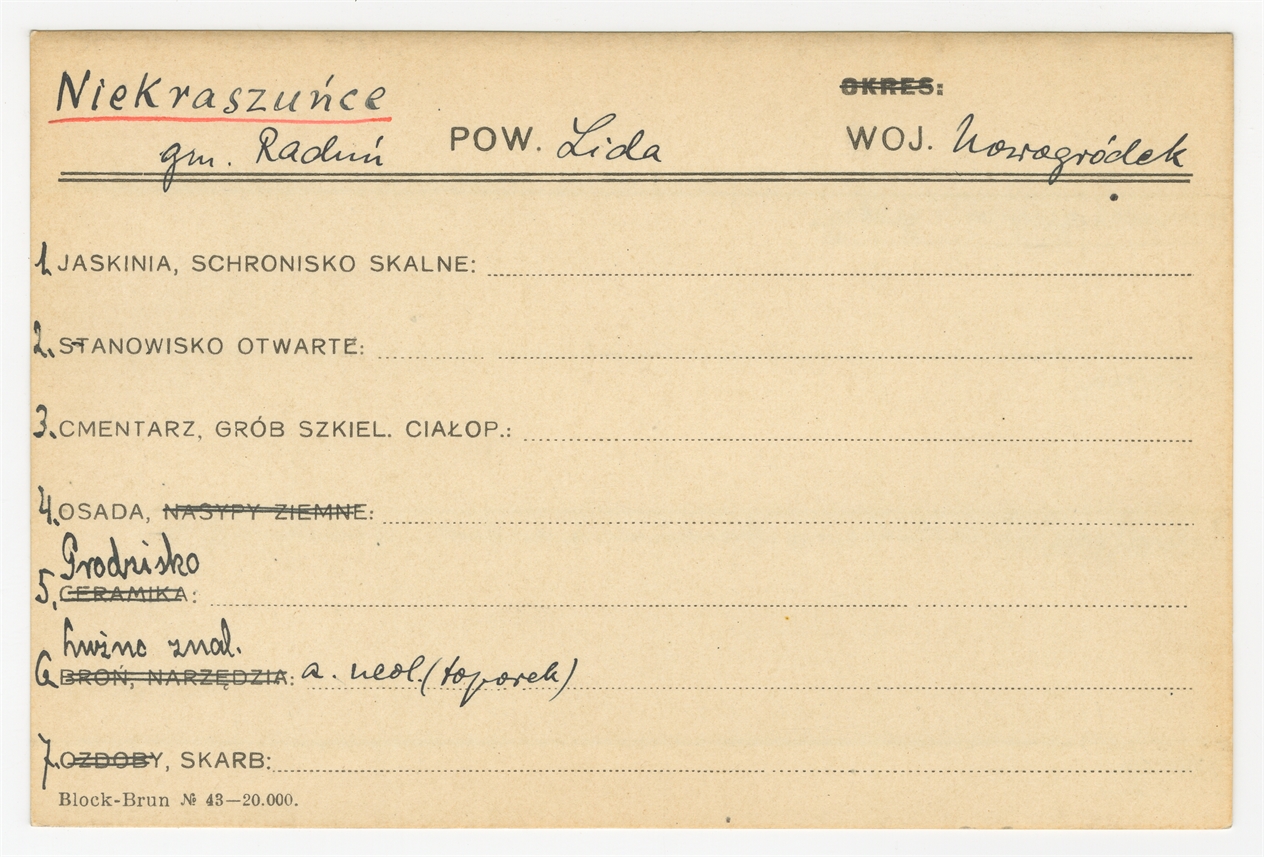 Niekraszuńce
OKRES:
gm. Raduń POW. Lida WOJ. Nowogródek
1. JASKINIA, SCHRONISKO SKALNE:
2. STANOWISKO OTWARTE:
3. CMENTARZ, GRÓB SZKIEL. CIAŁOP.:
4. OSADA, NASYPY ZIEMNE:
Grodzisko
5. CERAMIKA:
Luźne znal.
6. BROŃ, NARZĘDZIA: a. neol. (toporek)
7. OZDOBY, SKARB:
Block-Brun № 43—20.000.